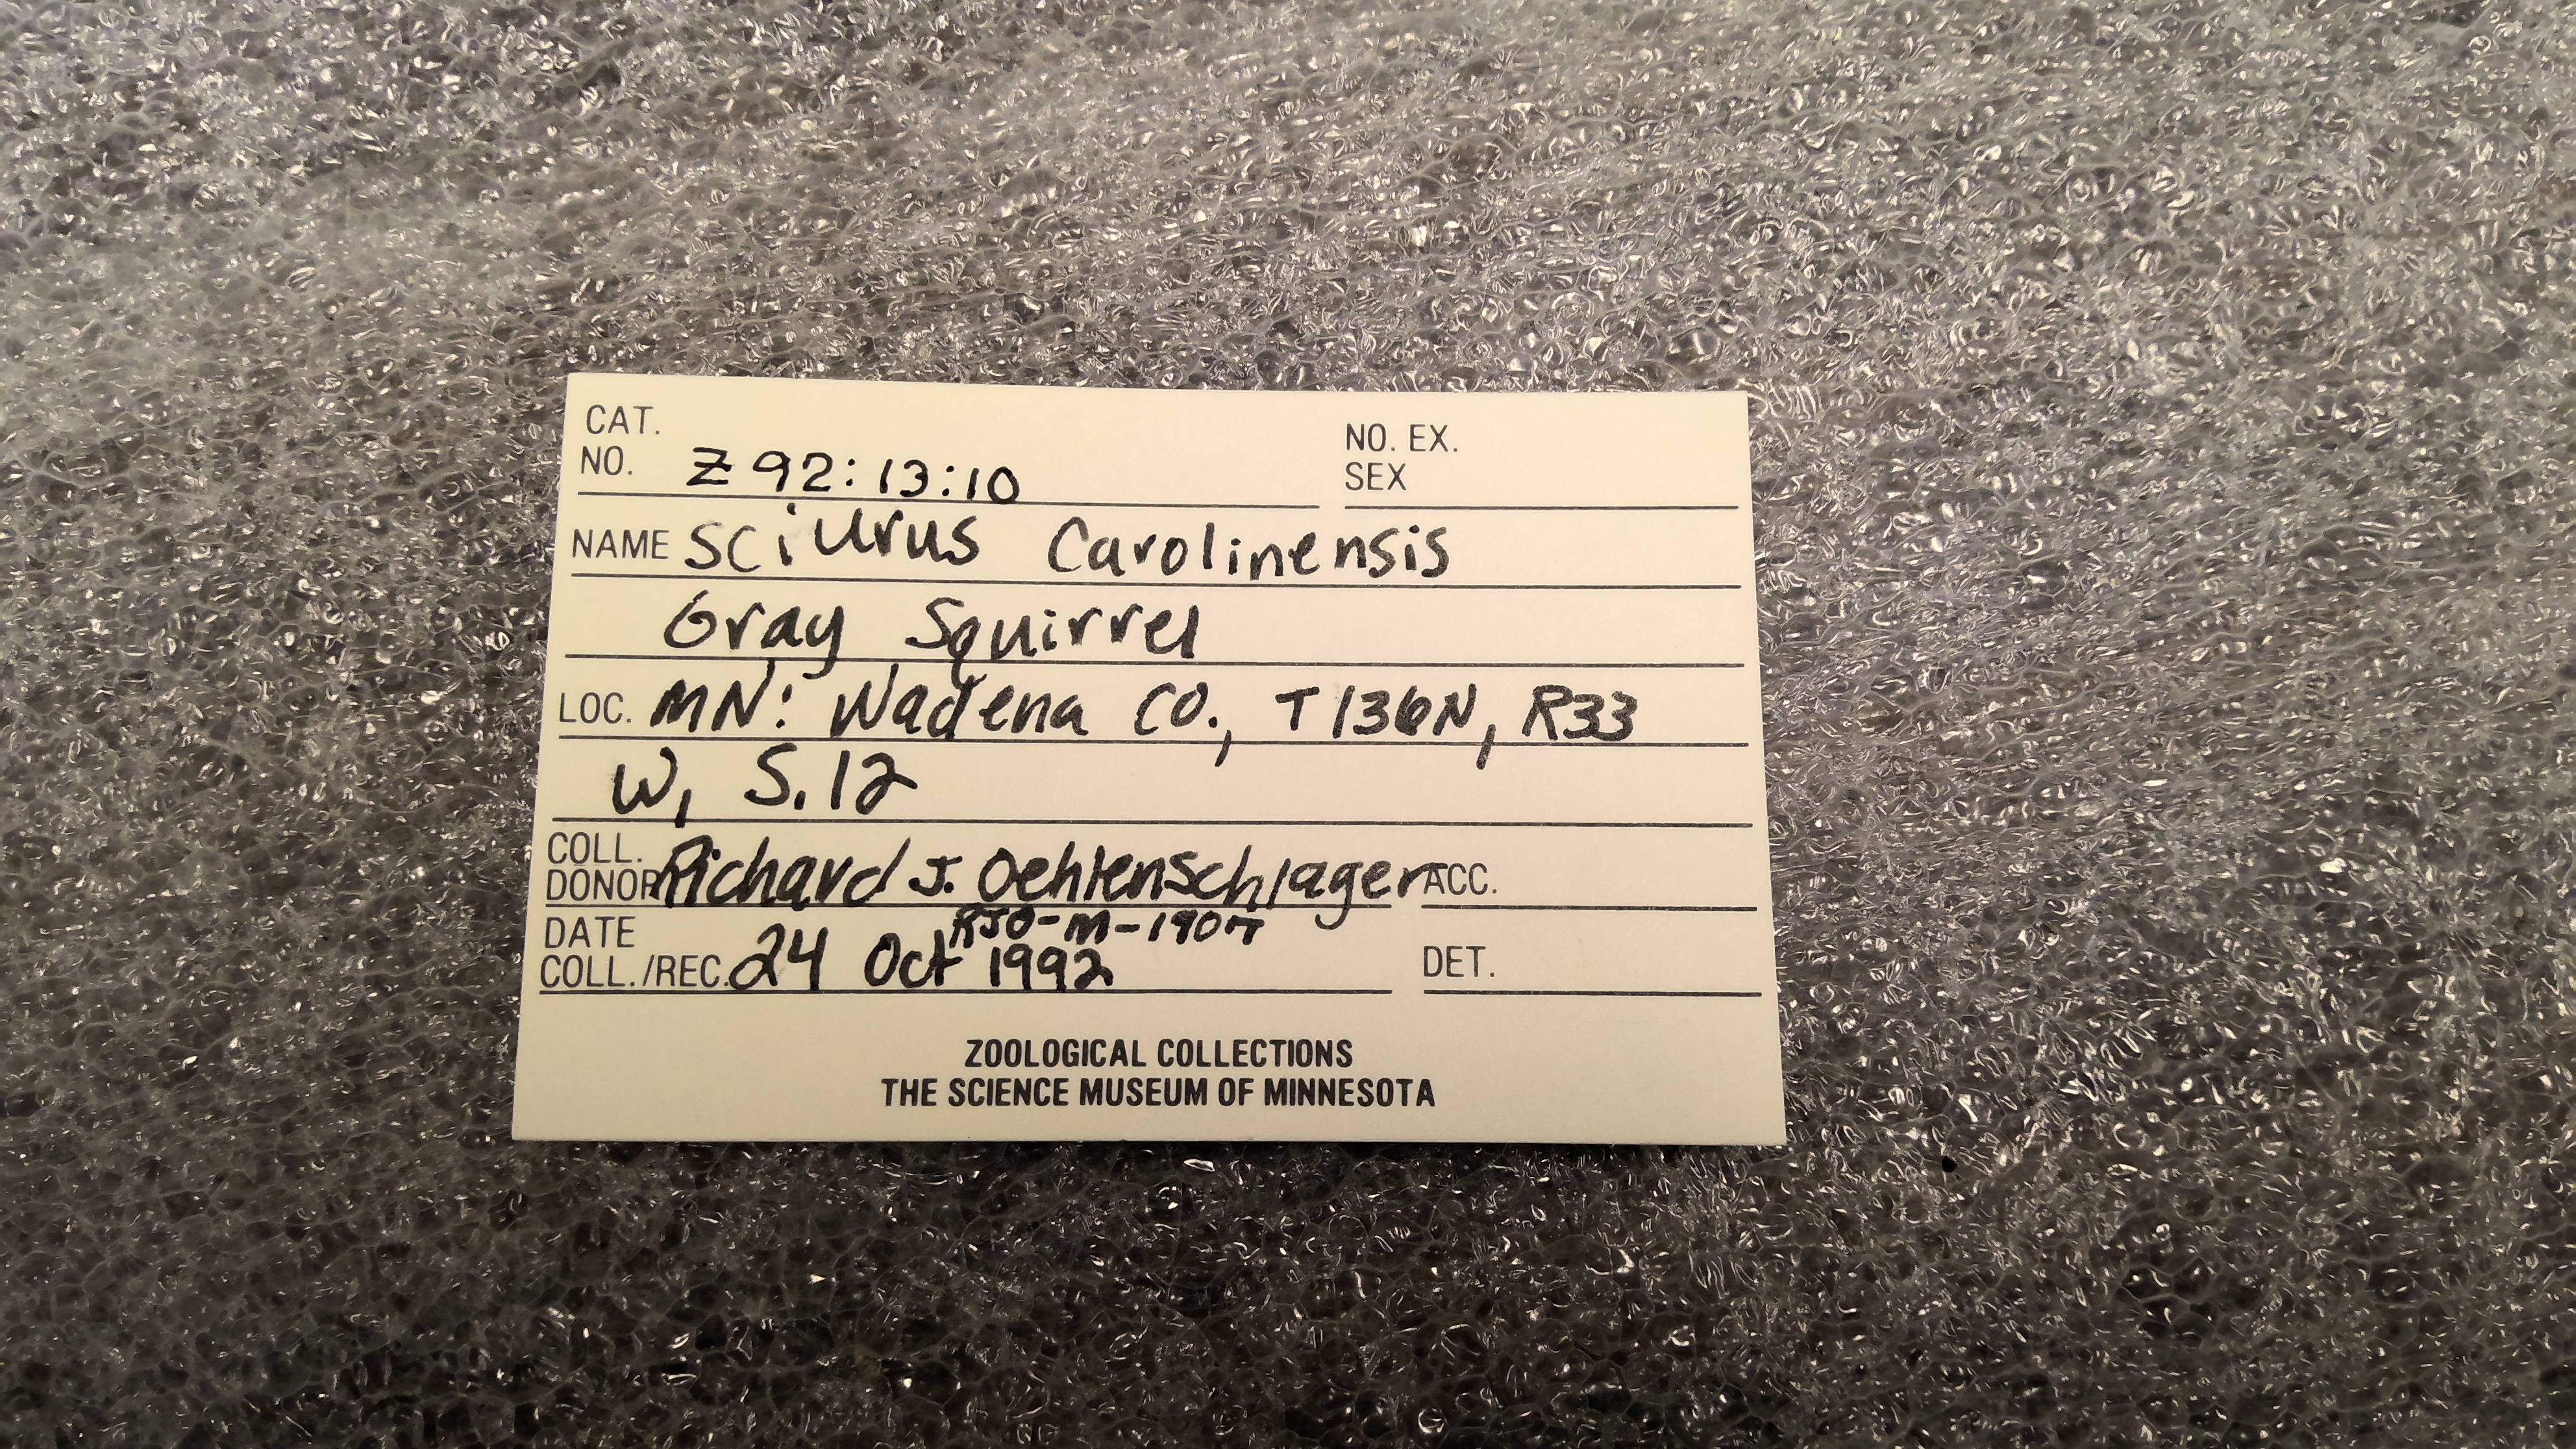 CAT.
NO. Z 92:13:10
NO. EX.
SEX
NAME Sciurus Carolinensis
Gray Squirrel
LOC. MN: Wadena Co., T136N, R33
W, S.12
COLL.
DONOR Richard J. Oehlenschlager ACC.
RJO-M-1907
DATE
COLL./REC. 24 Oct 1992 DET.
ZOOLOGICAL COLLECTIONS
THE SCIENCE MUSEUM OF MINNESOTA